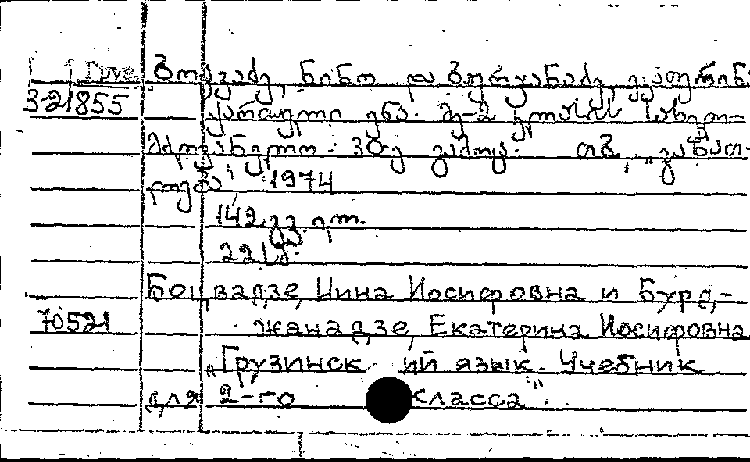 ბოცვაძე, ნინო და ბურჯანაძე, ეკატერინე
3-21855 ქართული ენა. მე-2 კლასის სახელ-
მძღვანელო. მე-30 გამოც. თბ., „განათ-
ლება“ 1974
142 გვ. ილ.
Боцвадзе, Нина Иосифовна и Бурд,-
70521 жанадзе, Екатерина Иосифовна
„Грузинск ий язык. Учебник
для 2-го класса".